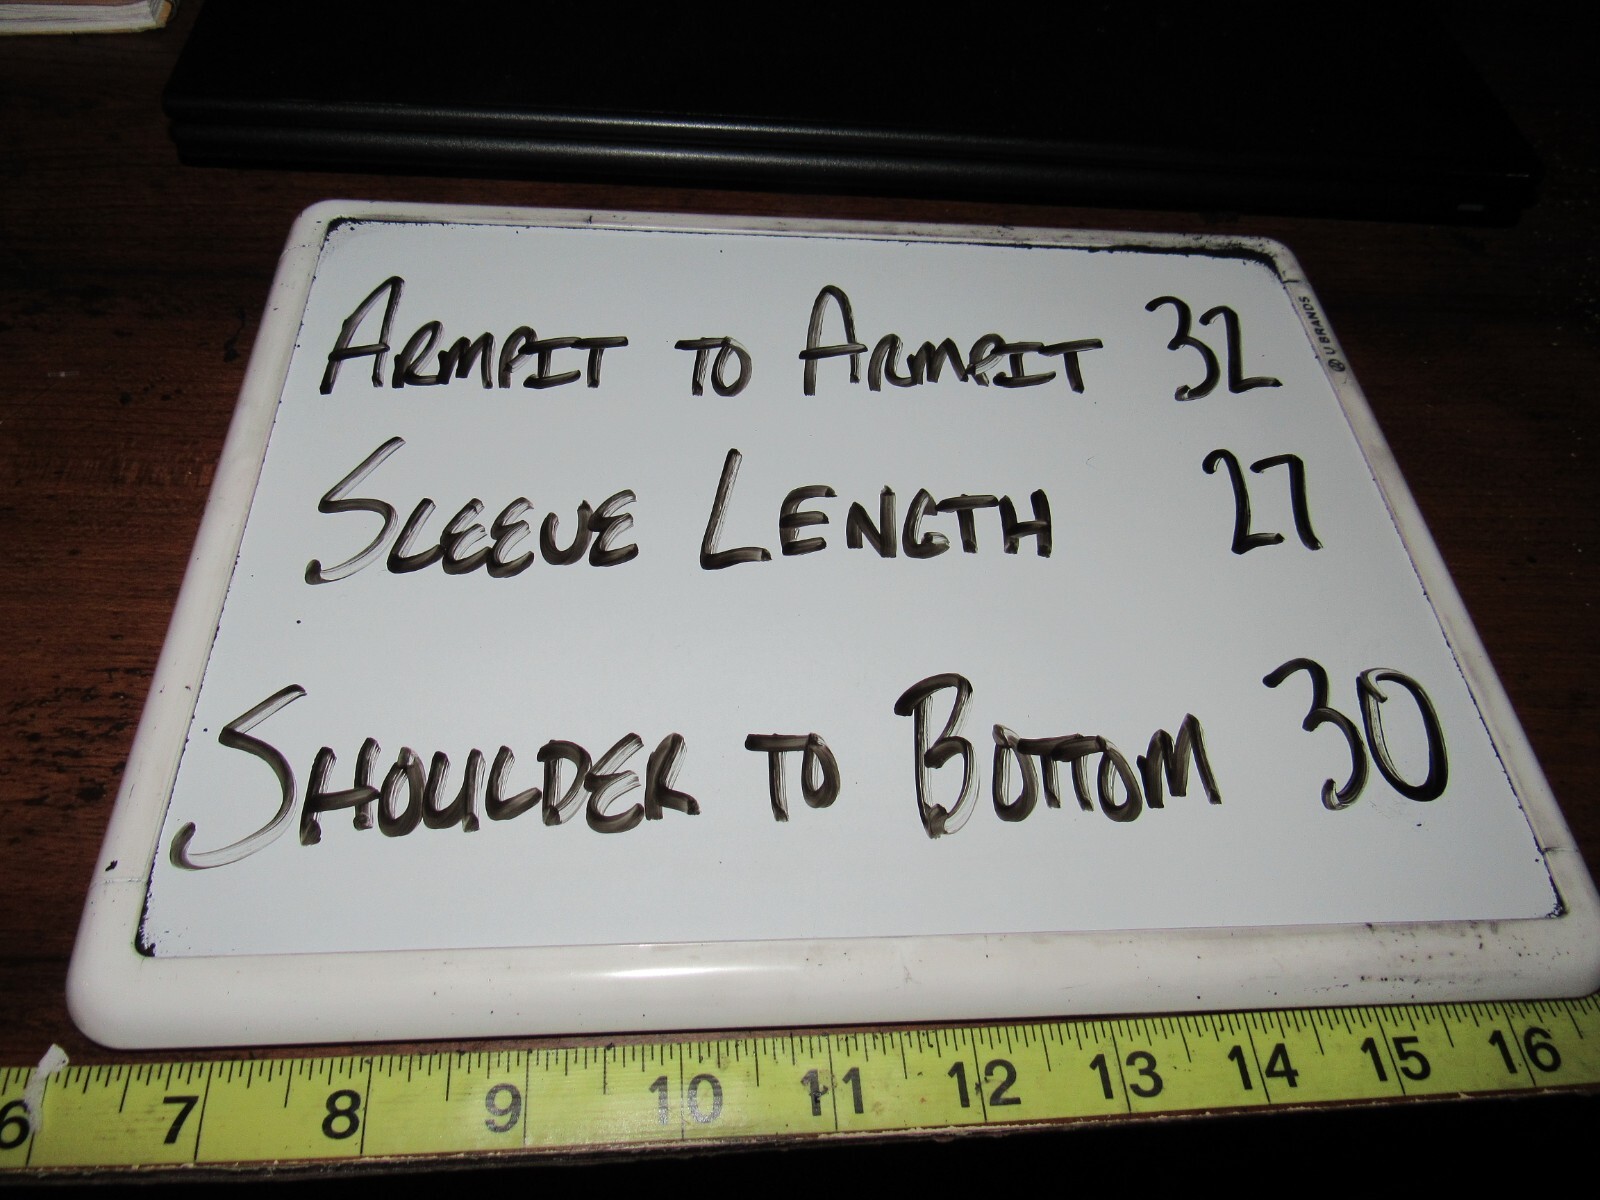 ARMPIT TO ARMPIT 32
SLEEVE LENGTH 27
SHOULDER TO BOTTOM 30
U BRANDS
6 7 8 9 10 11 12 13 14 15 16